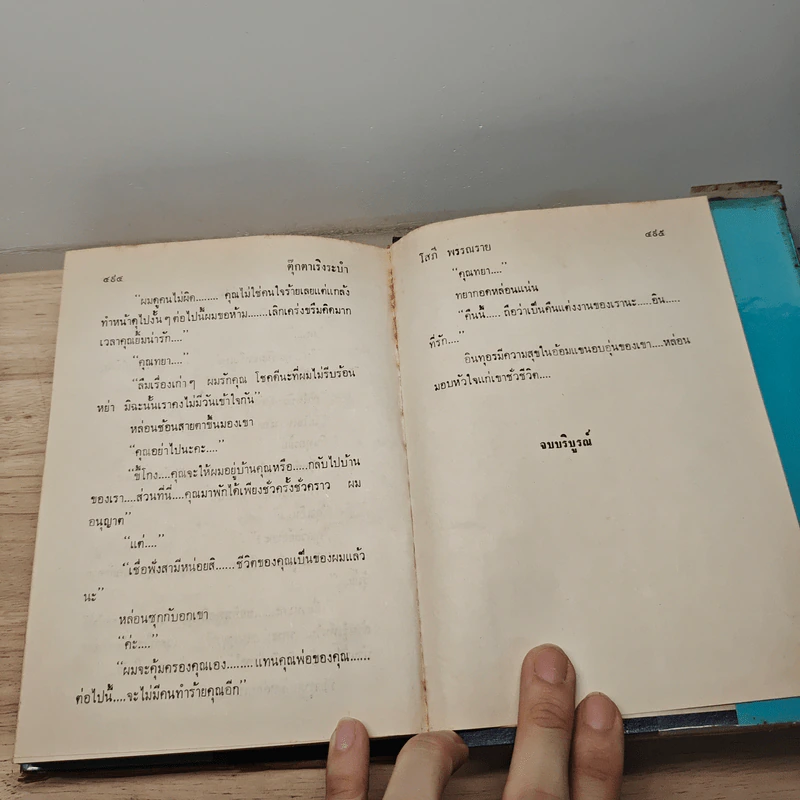 ๔๙๔ ตุ๊กตาเริงระบำ
"ผมดูคนไม่ผิด........ คุณไม่ใช่คนใจร้ายเลยแต่แกล้ง
ทำหน้าดุไปงั้น ๆ ต่อไปนี้ผมขอห้าม.......เลิกเคร่งขรึมคิดมาก
เวลาคุณยิ้มน่ารัก...."
"คุณทยา...."
"ลืมเรื่องเก่า ๆ ผมรักคุณ โชคดีนะที่ผมไม่รีบร้อน
หย่า มิฉะนั้นเราคงไม่มีวันเข้าใจกัน"
หล่อนช้อนสายตาขึ้นมองเขา
"คุณอย่าไปนะคะ...."
"ขี้โกง....คุณจะให้ผมอยู่บ้านคุณหรือ.....กลับไปบ้าน
ของเรา....ส่วนที่นี่....คุณมาพักได้เพียงชั่วครั้งชั่วคราว ผม
อนุญาต"
"แต่...."
"เชื่อฟังสามีหน่อยสิ......ชีวิตของคุณเป็นของผมแล้ว
นะ"
หล่อนซุกกับอกเขา
"ค่ะ...."
"ผมจะคุ้มครองคุณเอง........แทนคุณพ่อของคุณ......
ต่อไปนี้....จะไม่มีคนทำร้ายคุณอีก"
โสภี พรรณราย ๔๙๕
"คุณทยา...."
ทยากอดหล่อนแน่น
"คืนนี้..... ถือว่าเป็นคืนแต่งงานของเรานะ.....อิน.....
ที่รัก...."
อินทุอรมีความสุขในอ้อมแขนอบอุ่นของเขา....หล่อน
มอบหัวใจแก่เขาชั่วชีวิต....
จบบริบูรณ์